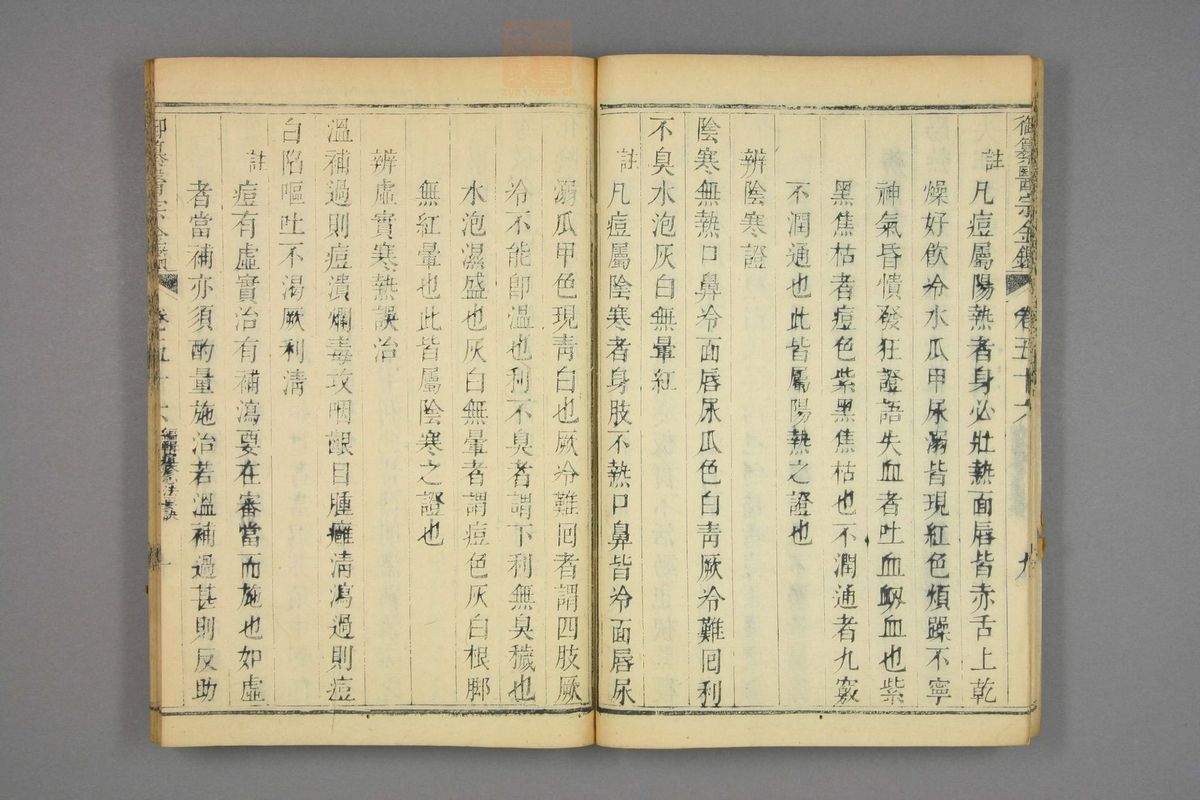 御纂醫宗金鑑 卷五十六 九
註凡痘屬陽熱者身必壯熱面唇皆赤舌上乾
燥好飲冷水瓜甲尿溺皆現紅色煩躁不寧
神氣昏憒發狂證語失血者吐血衂血也紫
黑焦枯者痘色紫黑焦枯也不潤通者九竅
不潤通也此皆屬陽熱之證也
辨陰寒證
陰寒無熱口鼻冷面唇尿瓜色白青厥冷難回利
不臭水泡灰白無暈紅
註凡痘屬陰寒者身肢不熱口鼻皆冷面唇尿
溺瓜甲色現青白也厥冷難回者謂四肢厥
冷不能即溫也利不臭者謂下利無臭穢也
水泡濕盛也灰白無暈者謂痘色灰白根脚
無紅暈也此皆屬陰寒之證也
辨虛實寒熱誤治
溫補過則痘潰爛毒攻咽齦目腫癰淸瀉過則痘
白陷嘔吐不渴厥利淸
註痘有虛實治有補瀉要在審當而施也如虛
者當補亦須酌量施治若溫補過甚則反助
御纂醫宗金鑑